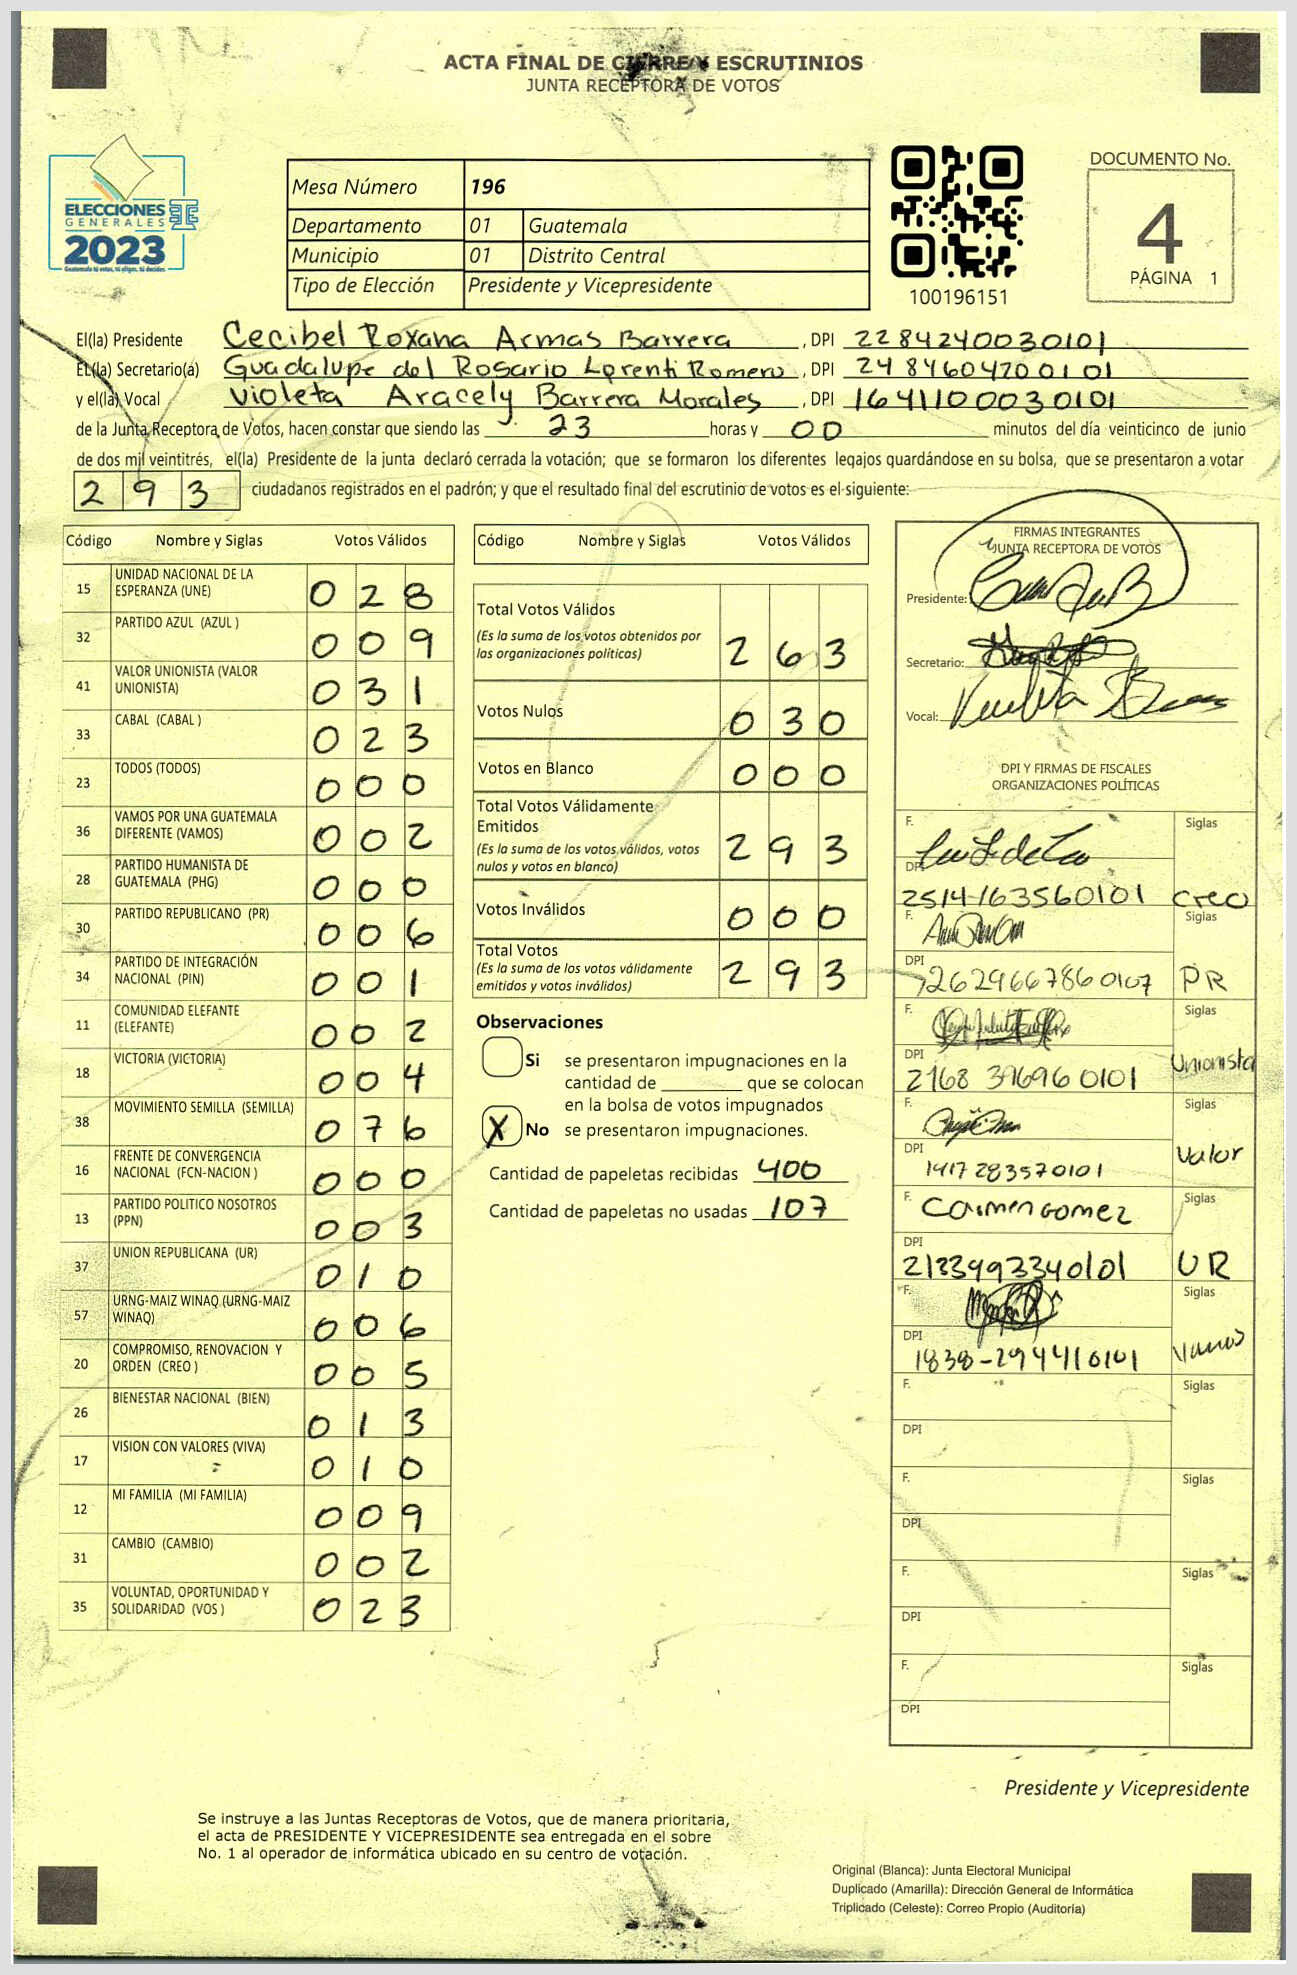 ACTA FINAL DE CIERRE Y ESCRUTINIOS
JUNTA RECEPTORA DE VOTOS
ELECCIONES
GENERALES
2023
Guatemala tú votas, tú eliges, tú decides.
Mesa Número 196
Departamento 01 Guatemala
Municipio 01 Distrito Central
Tipo de Elección Presidente y Vicepresidente
100196151
DOCUMENTO No.
4
PÁGINA 1
El(la) Presidente Cecibel Roxana Armas Barrera, DPI 2284240030101
EL(la) Secretario(a) Guadalupe del Rosario Lorenti Romero, DPI 2484604200101
y el(la) Vocal Violeta Aracely Barrera Morales, DPI 1641100030101
de la Junta Receptora de Votos, hacen constar que siendo las 23 horas y 00 minutos del día veinticinco de junio
de dos mil veintitrés, el(la) Presidente de la junta declaró cerrada la votación; que se formaron los diferentes legajos guardándose en su bolsa, que se presentaron a votar
293 ciudadanos registrados en el padrón; y que el resultado final del escrutinio de votos es el siguiente:
Código Nombre y Siglas Votos Válidos
15 UNIDAD NACIONAL DE LA ESPERANZA (UNE) 028
32 PARTIDO AZUL (AZUL ) 009
41 VALOR UNIONISTA (VALOR UNIONISTA) 031
33 CABAL (CABAL ) 023
23 TODOS (TODOS) 000
36 VAMOS POR UNA GUATEMALA DIFERENTE (VAMOS) 002
28 PARTIDO HUMANISTA DE GUATEMALA (PHG) 000
30 PARTIDO REPUBLICANO (PR) 006
34 PARTIDO DE INTEGRACIÓN NACIONAL (PIN) 001
11 COMUNIDAD ELEFANTE (ELEFANTE) 002
18 VICTORIA (VICTORIA) 004
38 MOVIMIENTO SEMILLA (SEMILLA) 076
16 FRENTE DE CONVERGENCIA NACIONAL (FCN-NACION ) 000
13 PARTIDO POLITICO NOSOTROS (PPN) 003
37 UNION REPUBLICANA (UR) 010
57 URNG-MAIZ WINAQ (URNG-MAIZ WINAQ) 006
20 COMPROMISO, RENOVACION Y ORDEN (CREO ) 005
26 BIENESTAR NACIONAL (BIEN) 013
17 VISION CON VALORES (VIVA) 010
12 MI FAMILIA (MI FAMILIA) 009
31 CAMBIO (CAMBIO) 002
35 VOLUNTAD, OPORTUNIDAD Y SOLIDARIDAD (VOS ) 023
Código Nombre y Siglas Votos Válidos
Total Votos Válidos 263
(Es la suma de los votos obtenidos por
las organizaciones políticas)
Votos Nulos 030
Votos en Blanco 000
Total Votos Válidamente
Emitidos 293
(Es la suma de los votos válidos, votos
nulos y votos en blanco)
Votos Inválidos 000
Total Votos 293
(Es la suma de los votos válidamente
emitidos y votos inválidos)
Observaciones
Si se presentaron impugnaciones en la
cantidad de ________ que se colocan
en la bolsa de votos impugnados
X No se presentaron impugnaciones.
Cantidad de papeletas recibidas 400
Cantidad de papeletas no usadas 107
FIRMAS INTEGRANTES
JUNTA RECEPTORA DE VOTOS
Presidente:
Secretario:
Vocal:
DPI Y FIRMAS DE FISCALES
ORGANIZACIONES POLÍTICAS
F. Siglas
DPI 2514163560101 Creo
F. Siglas
DPI 2629667860107 PR
F. Siglas
DPI 2168 396960101 Unionista
F. Siglas
DPI 1417283570101 Valor
F. Carmen Gomez Siglas
DPI 2133493340101 UR
F. Siglas
DPI 1838-294410101 Vamos
F. Siglas
DPI
F. Siglas
DPI
F. Siglas
DPI
F. Siglas
DPI
Presidente y Vicepresidente
Se instruye a las Juntas Receptoras de Votos, que de manera prioritaria,
el acta de PRESIDENTE Y VICEPRESIDENTE sea entregada en el sobre
No. 1 al operador de informática ubicado en su centro de votación.
Original (Blanca): Junta Electoral Municipal
Duplicado (Amarilla): Dirección General de Informática
Triplicado (Celeste): Correo Propio (Auditoría)